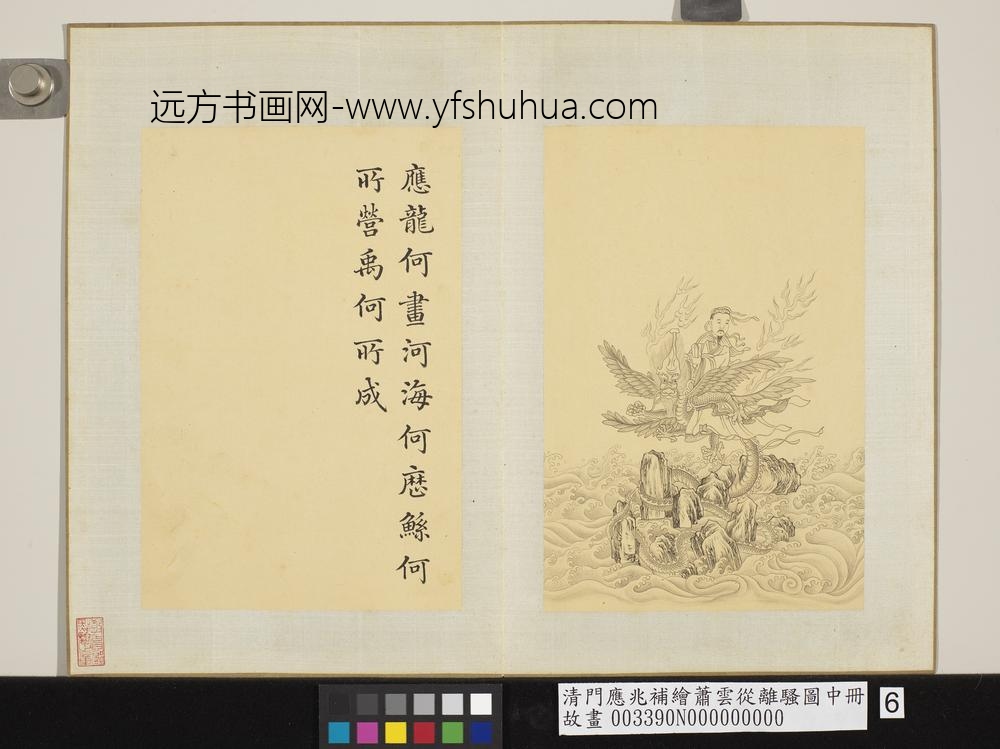 远方书画网-www.yfshuhua.com
應龍何畫河海何歷鯀何
所營禹何所成
清門應兆補繪蕭雲從離騷圖中冊
故畫 003390N000000000
6